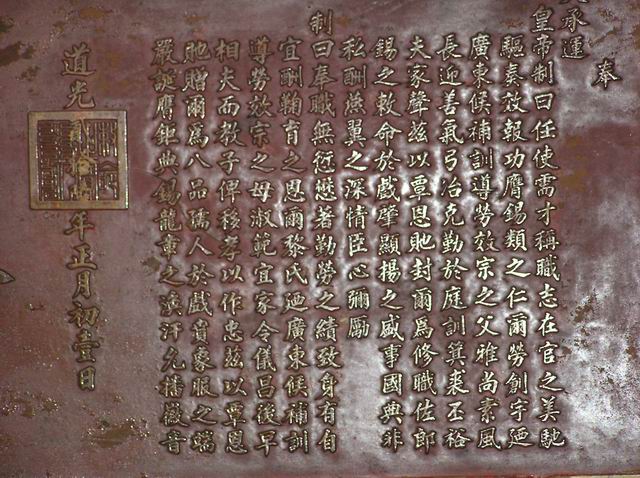 奉
天承運
皇帝制曰任使需才稱職志在官之美馳
驅奏效報功膺錫類之仁爾勞創宇廼
廣東候補訓導勞效宗之父雅尚素風
長迎善氣弓冶克勤於庭訓箕裘丕裕
夫家聲茲以覃恩貤封爾為修職佐郎
錫之敕命於戲肇顯揚之盛事國典非
私酬燕翼之深情臣心彌勵
制曰奉職無愆懋著勤勞之績致身有自
宜酬鞠育之恩爾黎氏廼廣東候補訓
導勞效宗之母淑範宜家令儀昌後早
相夫而教子俾移孝以作忠茲以覃恩
貤贈爾為八品孺人於戲賁象服之端
嚴誕膺鉅典錫龍章之渙汗允播徽音
道光貳拾年正月初壹日